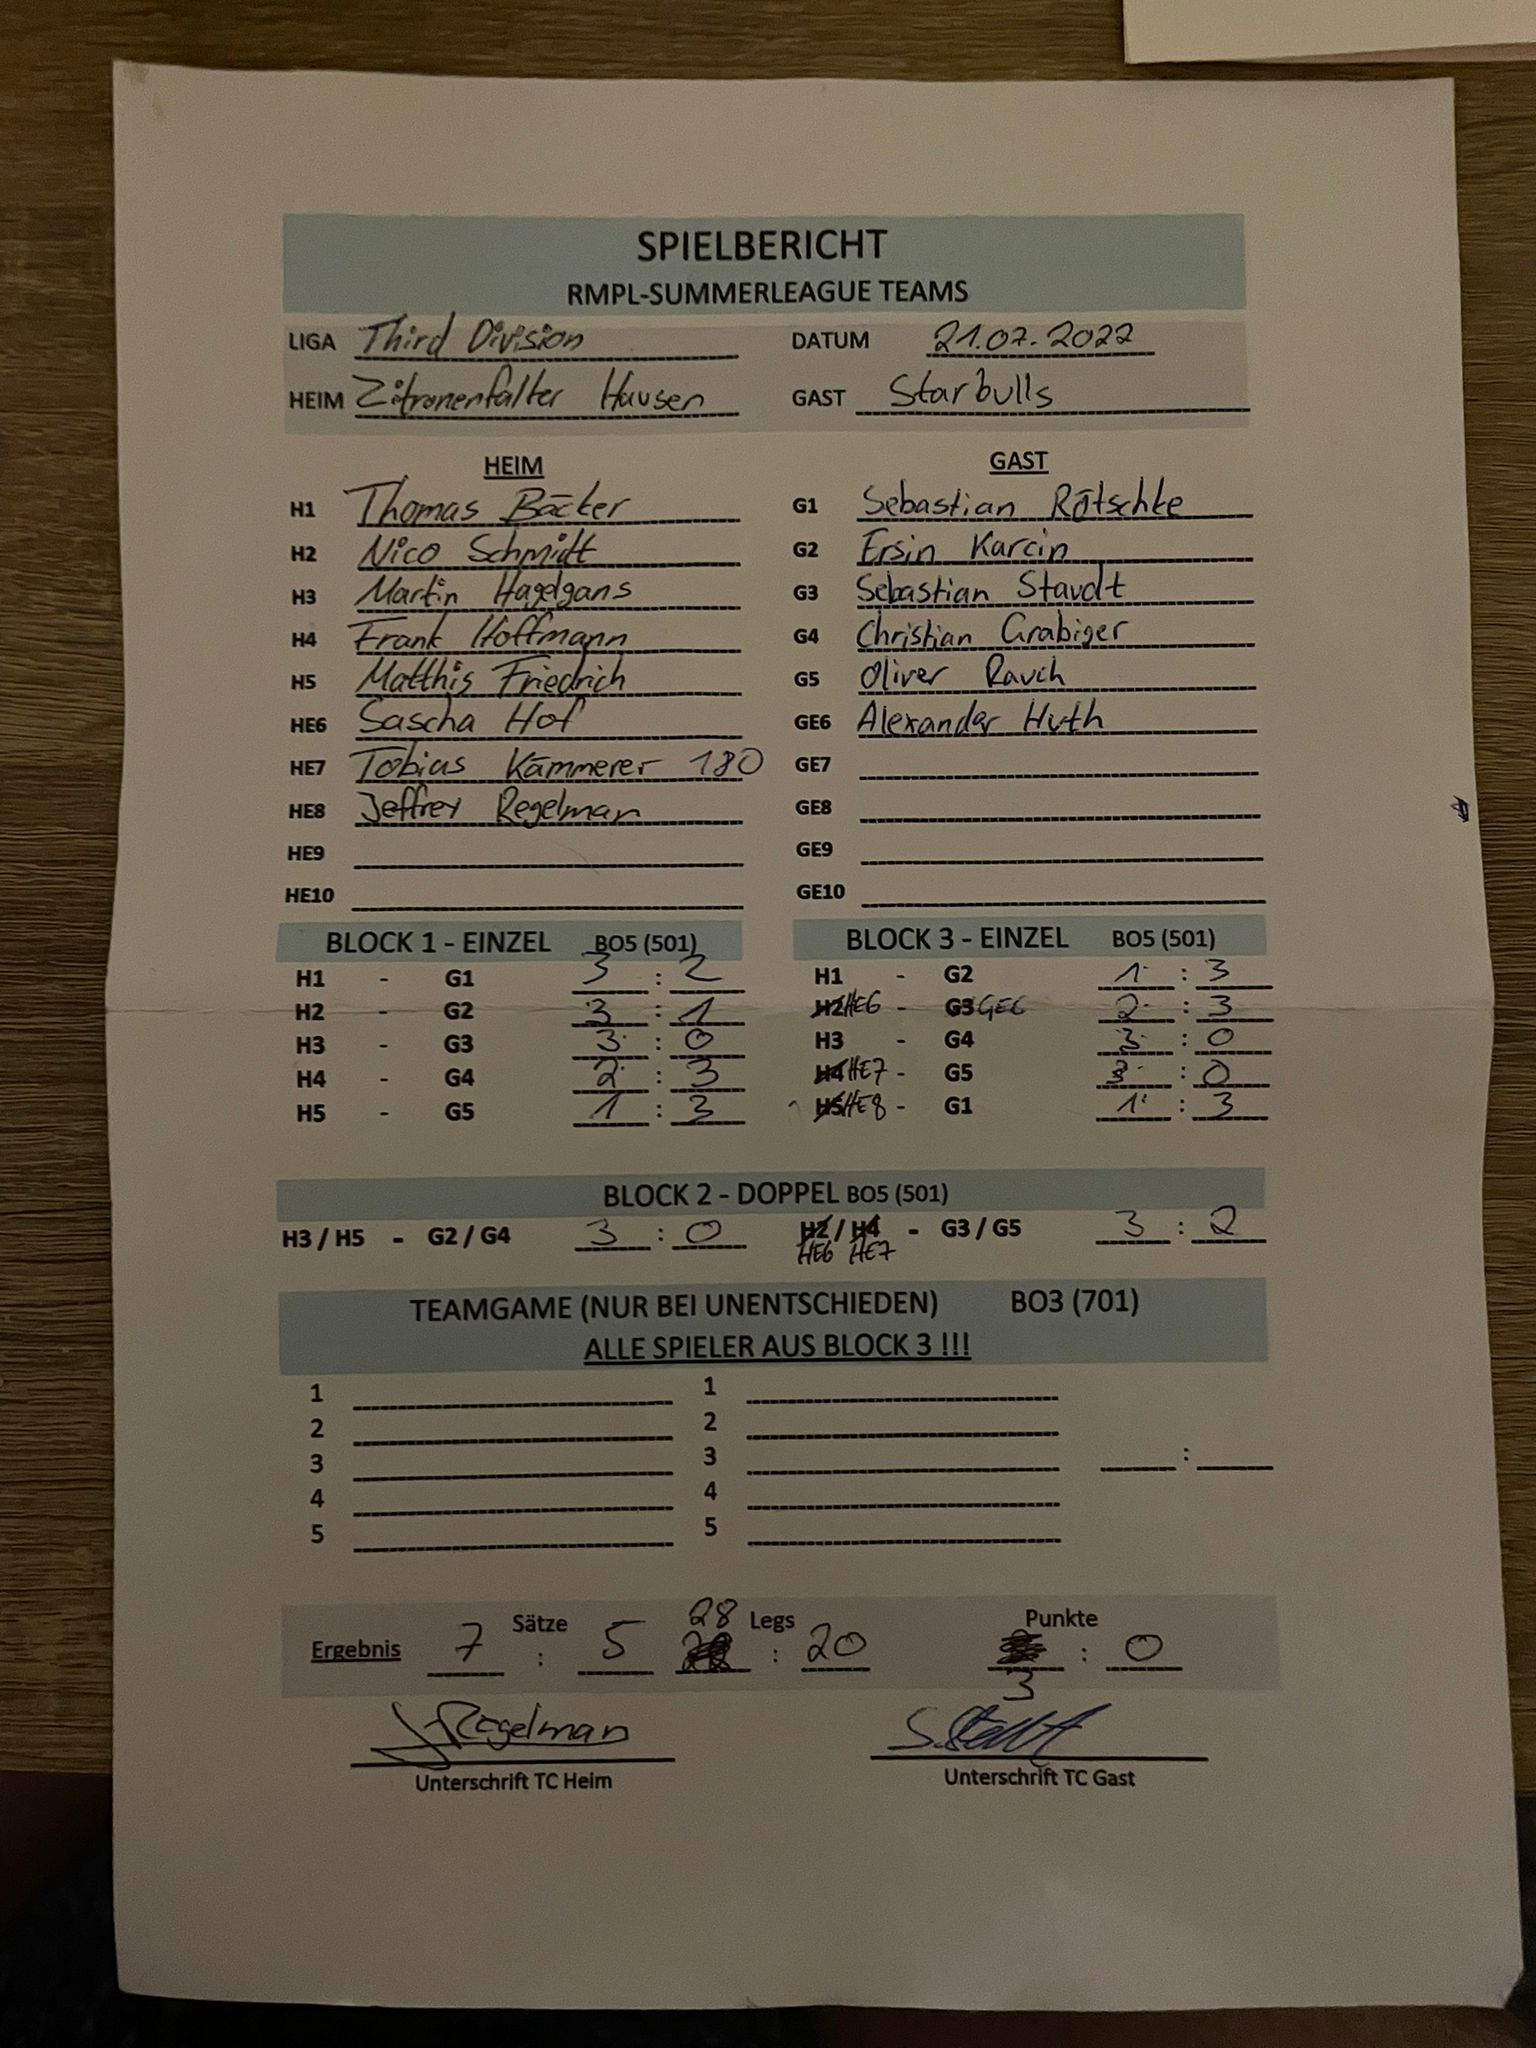 SPIELBERICHT
RMPL-SUMMERLEAGUE TEAMS
LIGA Third Division DATUM 21.07.2022
HEIM Zitronenfalter Hausen GAST Starbulls
HEIM GAST
H1 Thomas Bäcker G1 Sebastian Rötschke
H2 Nico Schmidt G2 Ersin Karcin
H3 Martin Hagelgans G3 Sebastian Staudt
H4 Frank Hoffmann G4 Christian Grabiger
H5 Matthis Friedrich G5 Oliver Rauch
HE6 Sascha Hof GE6 Alexander Huth
HE7 Tobias Kämmerer 180 GE7
HE8 Jeffrey Regelman GE8
HE9 GE9
HE10 GE10
BLOCK 1 - EINZEL BO5 (501) BLOCK 3 - EINZEL BO5 (501)
H1 - G1 3 : 2 H1 - G2 1 : 3
H2 - G2 3 : 1 H2 HE6 - G3 GE6 2 : 3
H3 - G3 3 : 0 H3 - G4 3 : 0
H4 - G4 2 : 3 H4 HE7 - G5 3 : 0
H5 - G5 1 : 3 H5 HE8 - G1 1 : 3
BLOCK 2 - DOPPEL BO5 (501)
H3 / H5 - G2 / G4 3 : 0 H2 / H4 - G3 / G5 3 : 2
HE6 HE7
TEAMGAME (NUR BEI UNENTSCHIEDEN) BO3 (701)
ALLE SPIELER AUS BLOCK 3 !!!
1 1
2 2
3 3 :
4 4
5 5
Sätze 28 Legs Punkte
Ergebnis 7 : 5 : 20 : 0
3
J Regelman S. Staudt
Unterschrift TC Heim Unterschrift TC Gast